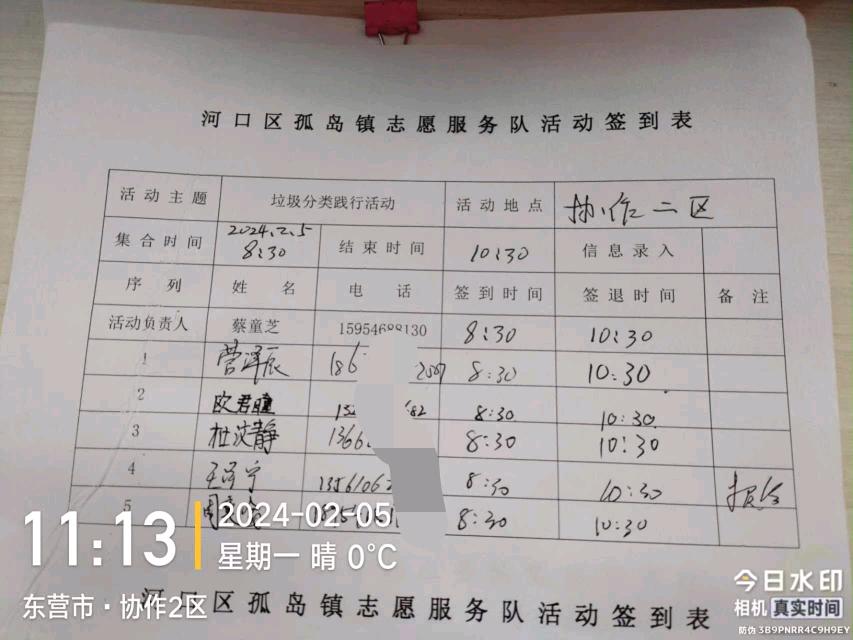 河口区孤岛镇志愿服务队活动签到表
活动主题 垃圾分类践行活动 活动地点 协作二区
集合时间 2024.2.5 8:30 结束时间 10:30 信息录入
序列 姓名 电话 签到时间 签退时间 备注
活动负责人 蔡童芝 15954688130 8:30 10:30
1 8:30 10:30
2 欧君瞳 8:30 10:30
3 杜波静 8:30 10:30
4 8:30 10:30
5 8:30 10:30
11:13
2024-02-05
星期一 晴 0℃
东营市·协作2区
河口区孤岛镇志愿服务队活动签到表
今日水印
相机 真实时间
防伪 3B9PNRR4C9H9EY